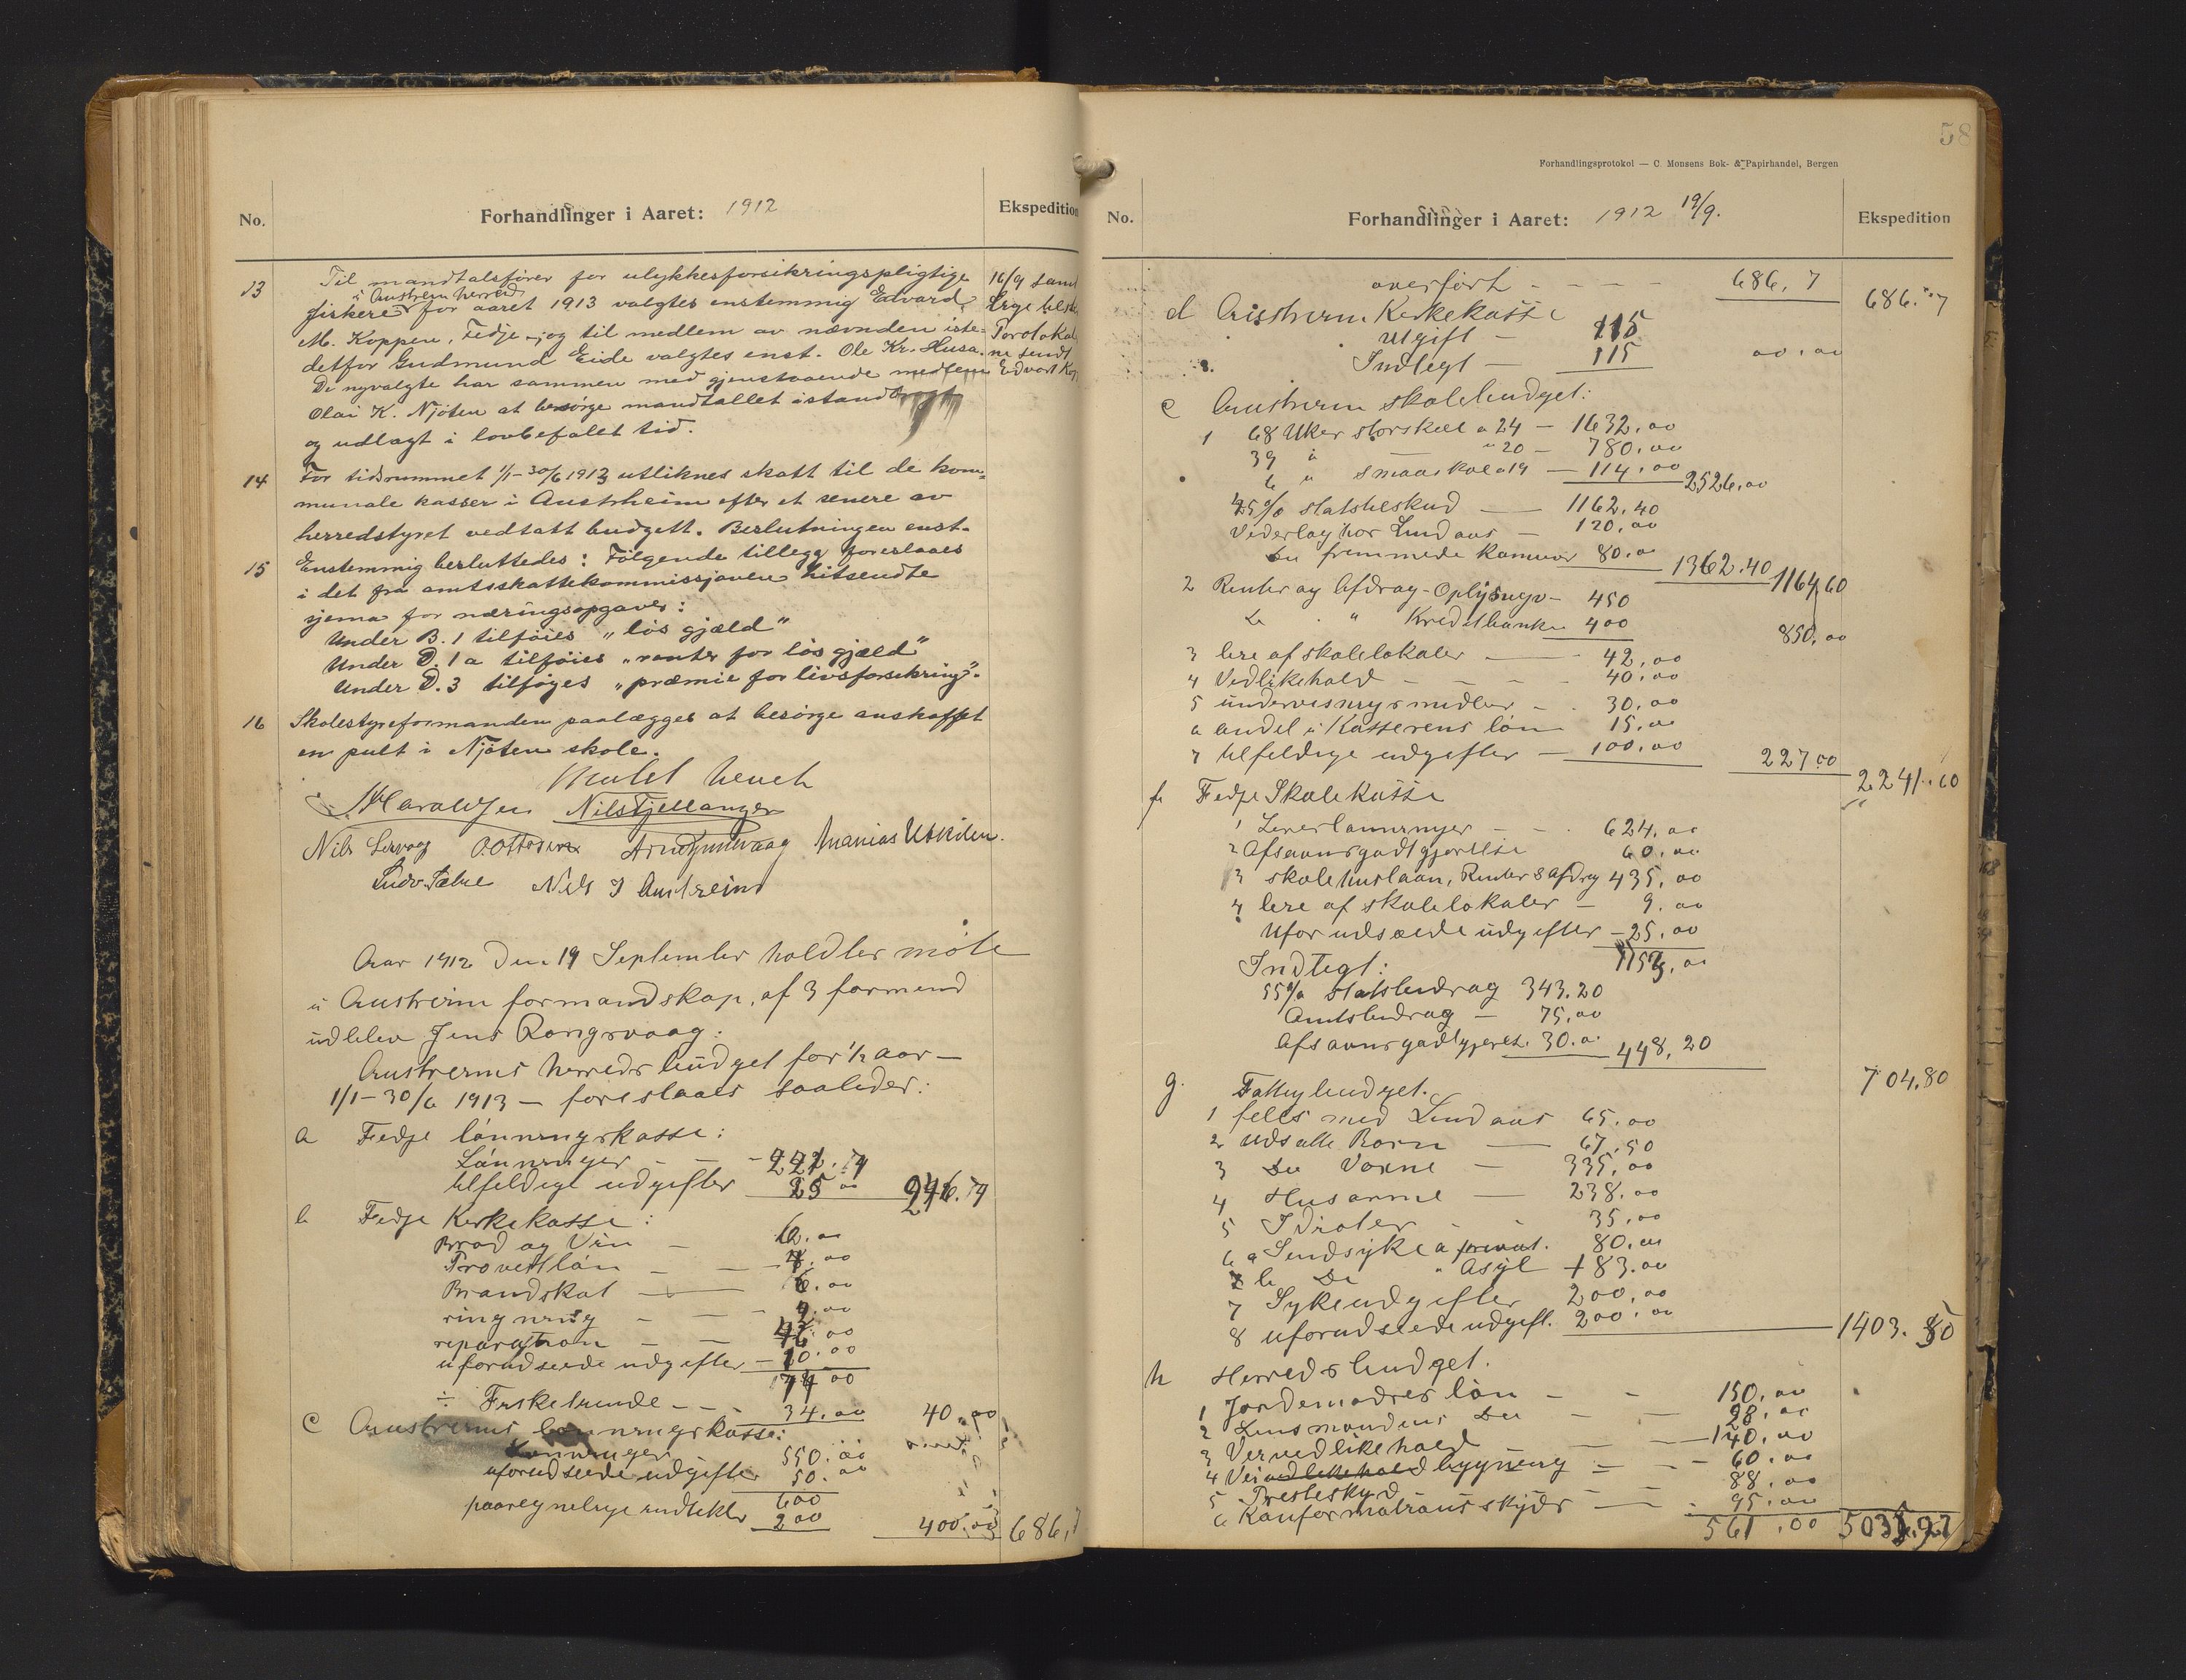 No.
Forhandlinger i Aaret: 1912
Ekspedition
13 Til mandtalsfører for ulykkesforsikringspligtige
i Austrem herred
fiskere for aaret 1913 valgtes enstemmig Edvard
M. Koppen, Fedje, og til medlem av nævnden iste-
detfor Gudmund Eide valgtes enst. Ole Kr. Husa.
De nyvalgte har sammen med gjenstaaende medlem
Olai K. Njøten at besørge mandtallet istandbragt
og udlagt i lovbefalet tid.
16/9 samt
Protokol
sendt
Edvart Kop
14 For tidsrummet 1/1-30/6 1913 utliknes skatt til de kom-
munale kasser i Austrheim efter et senere av
herredstyret vedtatt budgett. Beslutningen enst.
15 Enstemmig besluttedes: Følgende tillegg foreslaaes
i det fra amtsskattekommissjonen hitsendte
sjema for næringsopgaver:
Under B. 1 tilføies "løs gjæld"
Under D. 1 a tilføies "renter for løs gjæld"
Under D. 3 tilføyes "præmie for livsforsikring".
16 Skolestyreformanden paalægges at besørge anskaffet
en pult i Njøten skole.
Haraldsen Nils Tjellanger
Nils O. Ottesen Mathias Utkilen.
Nils J Austreim
Aar 1912 den 19 September holdtes møte
i Austreim formandskap, af 3 formend
udblev Jens Rongevaag:
Austreims herreds budget for 1/2 aar —
1/1-30/6 1913 — foreslaaes saaledes:
a Fedje lønningskasse:
Lønninger - - 221.74
tilfeldige udgifter 25 00 246.74
b Fedje Kirkekasse:
Brød og Vin — 6.00
Provstløn — 00
Brandskat — 6.00
ringning - 00
reparation — 00
uforudseede udgifter — 10.00
74 00
÷ Fisketiende - - 34.00 40.00
c Austreims lønningskasse:
Lønninger 550.00
uforudseede udgifter 50.00
600
paaregnelige indtekter 200 400.00 686,7
58
Forhandlingsprotokol — C. Monsens Bok- & Papirhandel, Bergen
No.
Forhandlinger i Aaret: 1912 19/9.
Ekspedition
overført - - - - 686,7 686.7
d Austreim Kirkekasse
Utgift — 115
Indtegt — 115 00.00
e Austreim skolebudget:
1 68 Uker storskole a 24 — 1632.00
39 " " 20 — 780.00
6 " smaaskole a 19 — 114.00 2526.00
45% statstilskud — 1162.40
Vederlag hos Lindaas — 120.00
Do fremmede Komuner 80.00 1362.40 1164.60
2 Renter og Afdrag - Oplysngv - 450
Do " Kreditbanken 400 850.00
3 leie af skolelokaler — 42.00
4 Vedlikehold - - - 40.00
5 undervisningsmidler - . 30.00
6 andel i Kasserens løn 15.00
7 tilfeldige udgifter — 100.00 227.00 2241.60
f Fedje Skolekasse
1 Lærerlønninger - - 624.00
2 Afsavnsgodtgjørelse 60.00
3 skolehuslaan, Renter & Afdrag 435.00
4 leie af skolelokaler — 9.00
Uforudseede udgifter — 25.00
1153.00
Indtegt:
55% statsbidrag 343.20
Amtsbidrag — 75.00
Afsavnsgodtgjørels. 30.00 448,20 704.80
g. Fattigbudget.
1 felles med Lindaas 65.00
2 Udsatte Børn — 67.50
3 Do Voxne — 335.00
4 Husarme — 238.00
5 Idioter - - 35.00
6 a Sindsyke a privat. 80.00
b Do " Asyl + 83.00
7 Sykeudgifter 200.00
8 uforudseede udgift. 200.00 1403.50
h Herredsbudget.
1 Jordemødres løn - - 150.00
2 Lensmandens Do - — 28.00
3 Veivedlikehold — — 140.00
4 Veivedlikehold bygning = = 60.00
5 Presteskyd — — 88.00
6 Konformationsskyds — - 95.00
561.00